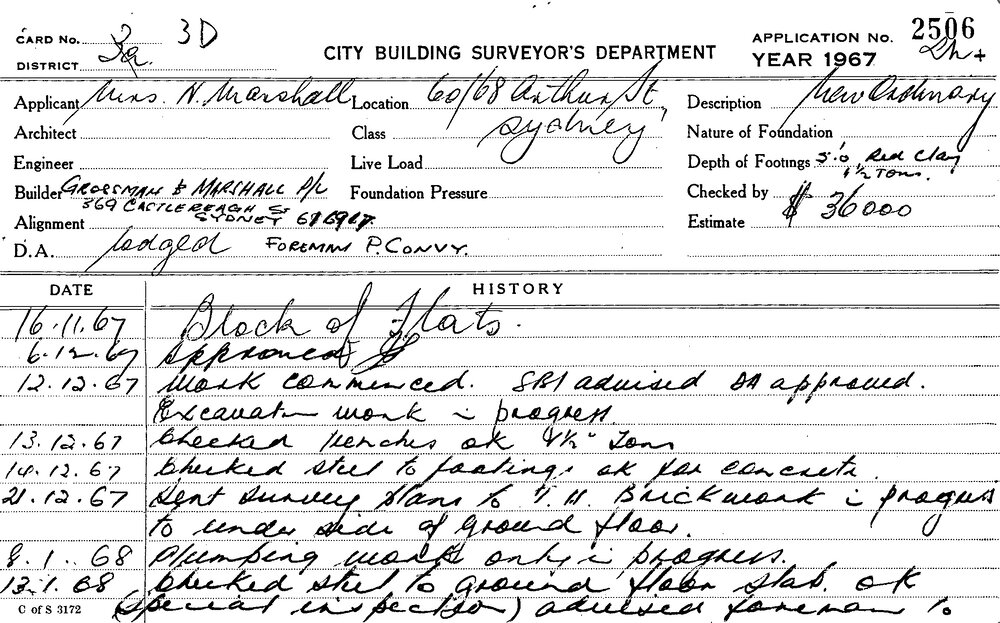 CARD No. 3a 3D
CITY BUILDING SURVEYOR'S DEPARTMENT
APPLICATION No. 2506
DISTRICT 3a.
YEAR 1967
Applicant Mrs. N. Marshall Location 60/68 Arthur St, Description New Ordinary
Architect Class Sydney Nature of Foundation
Engineer Live Load Depth of Footings 3'.0 Red Clay
1½ Tons.
Builder GROSSMAN & MARSHALL P/L Foundation Pressure Checked by
369 CASTLEREAGH ST
Alignment SYDNEY Estimate $ 36000
D.A. lodged FOREMAN P. CONVY.
DATE HISTORY
16.11.67 Block of Flats.
6.12.67 Approved
12.12.67 Work commenced. SBI advised DA approved.
Excavatn work in progress
13.12.67 Checked trenches ok 1½ Tons
14.12.67 Checked steel to footings ok for concrete
21.12.67 Sent survey plans to T.H. Brickwork in progress
to under side of ground floor.
8.1.68 Plumping work only in progress.
13.1.68 Checked steel to ground floor slab. ok
C of S 3172 (Special inspection) advised foreman to